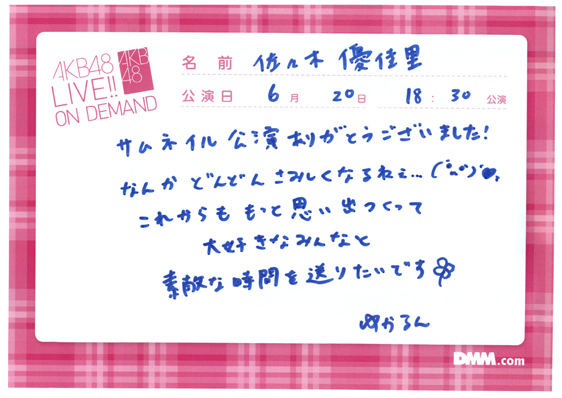 AKB48
LIVE!!
ON DEMAND
AKB
48
名前 佐々木 優佳里
公演日 6月 20日 18:30 公演
サムネイル公演ありがとうございました!
なんか どんどん さみしくなるねぇ…
これからも もっと思い出つくって
大好きなみんなと
素敵な時間を送りたいです
ゆかるん
DMM.com